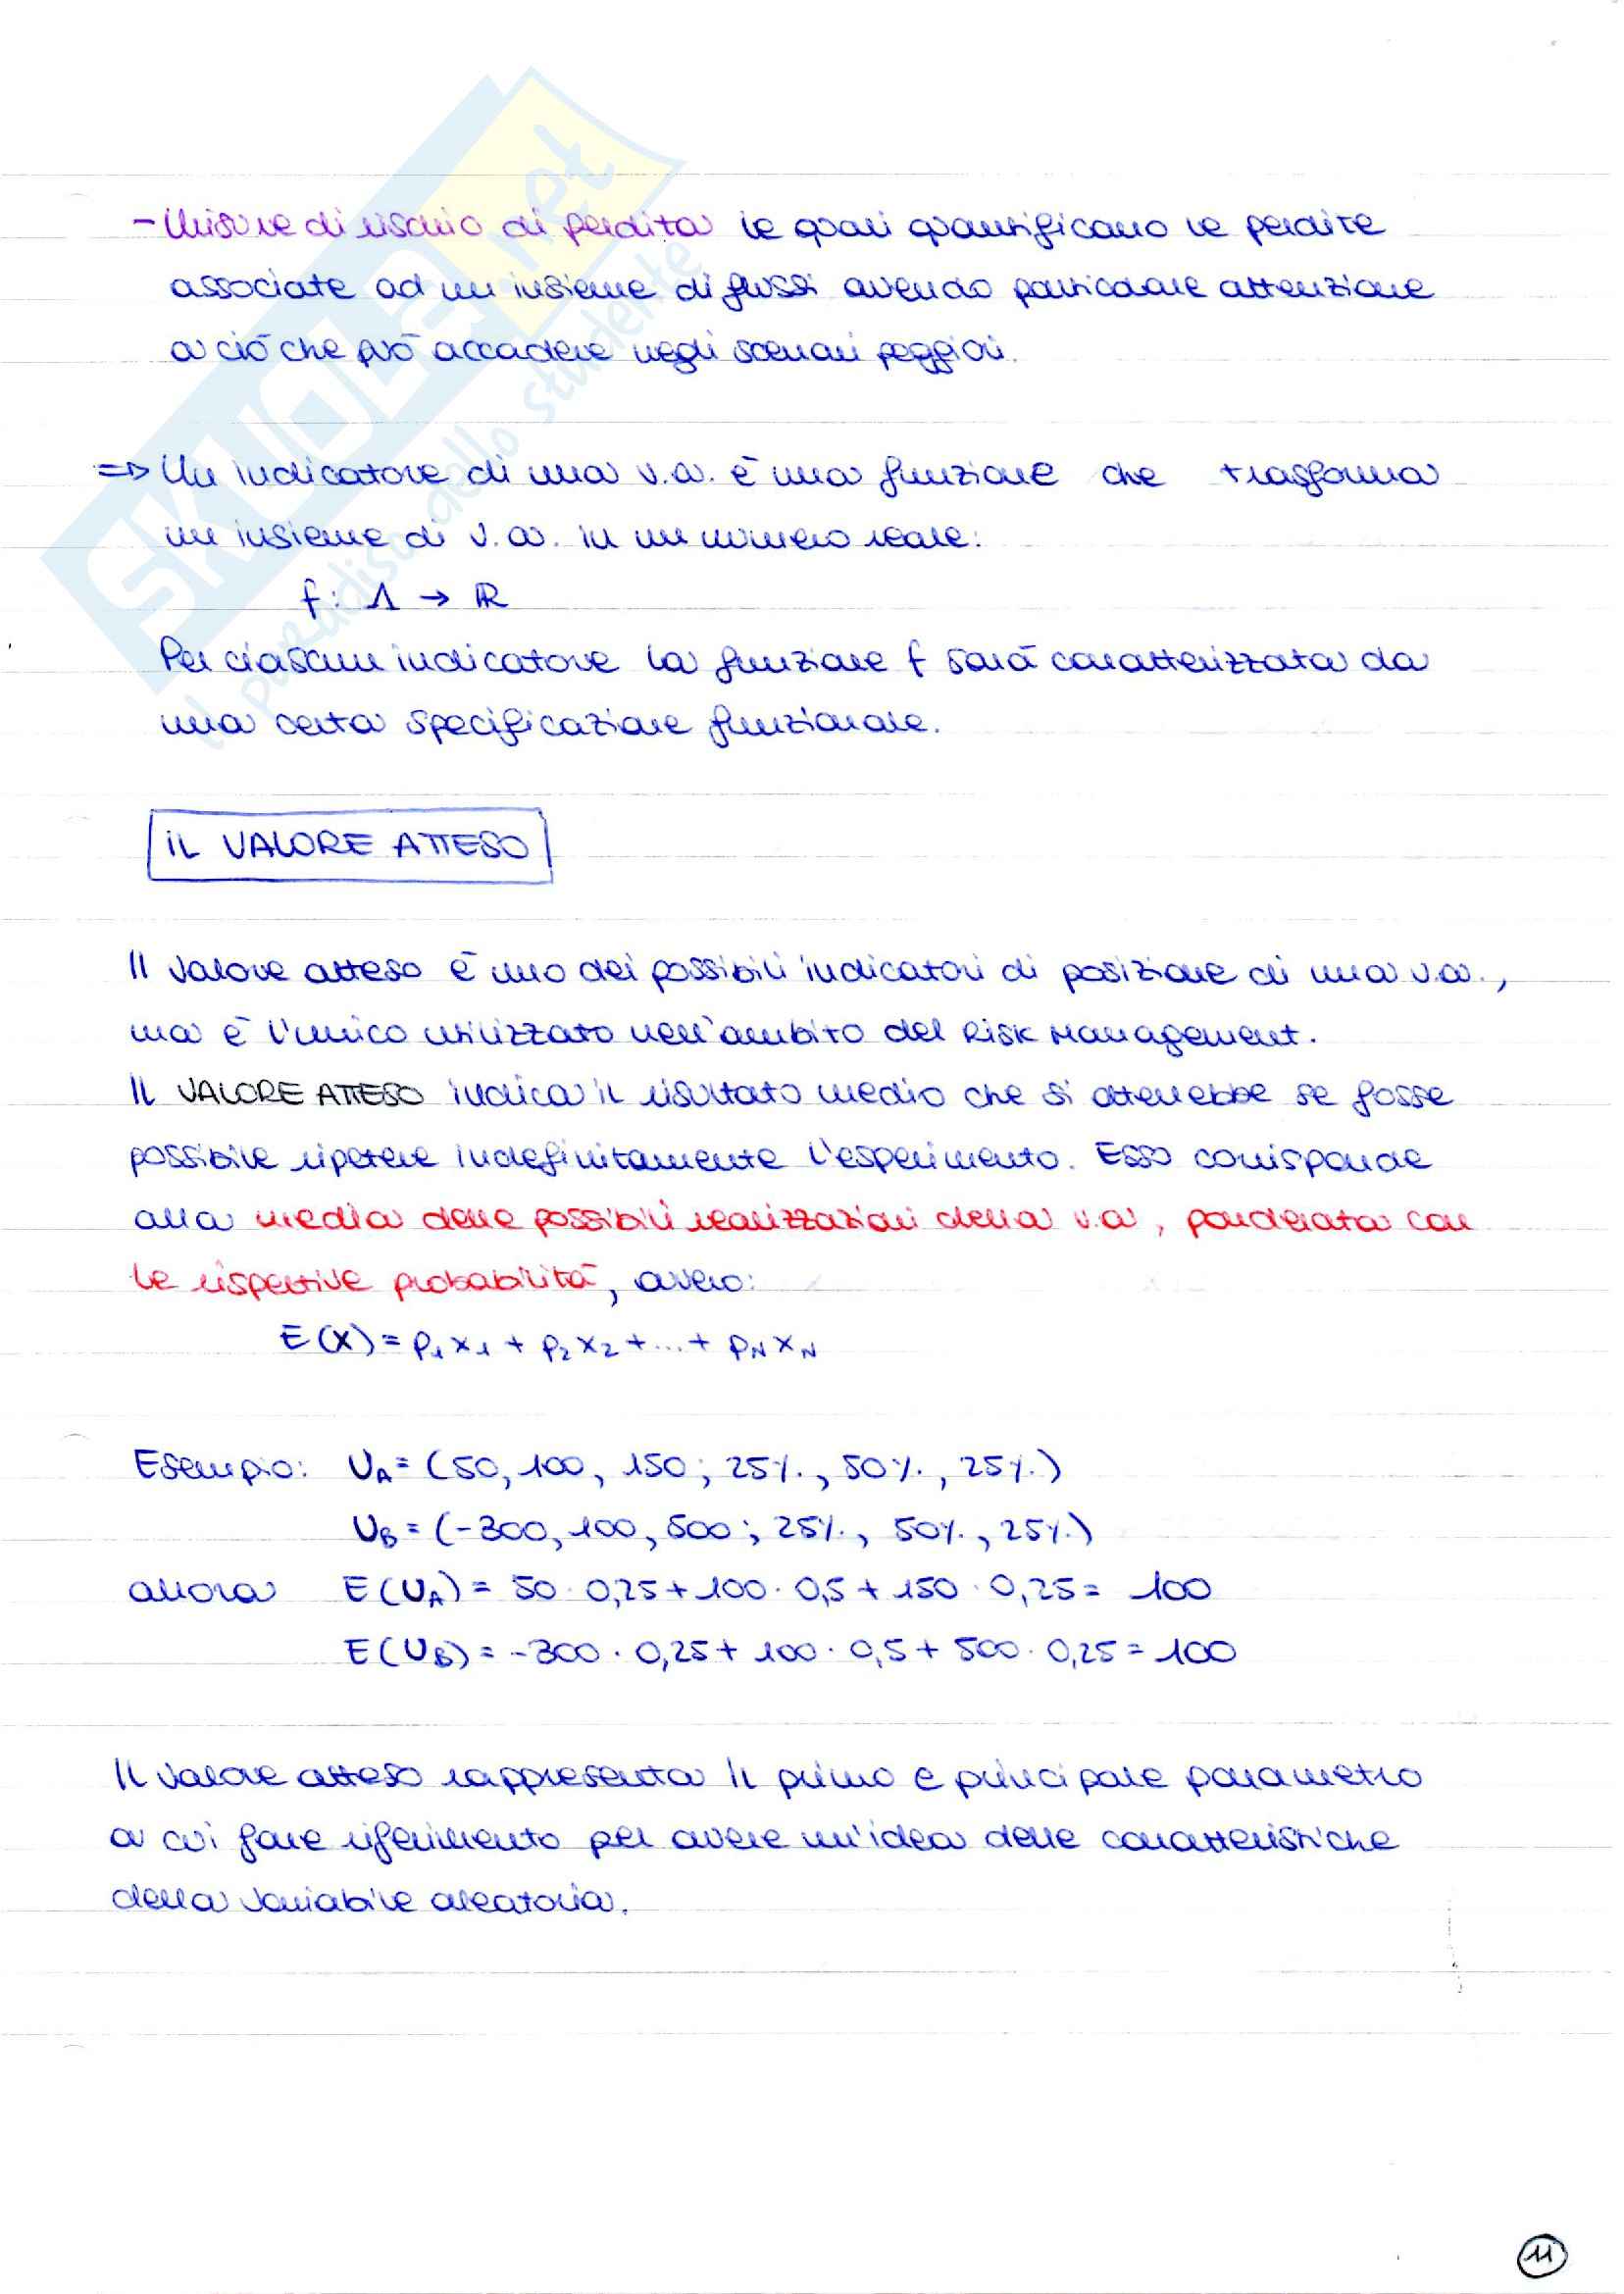 - Misure di rischio di perdita le quali quantificano le perdite
associate ad un insieme di flussi avendo particolare attenzione
a ciò che può accadere negli scenari peggiori.
=> Un indicatore di una v.a. è una funzione che trasforma
un insieme di v.a. in un numero reale:
f: Λ → ℝ
Per ciascun indicatore la funzione f sarà caratterizzata da
una certa specificazione funzionale.
IL VALORE ATTESO
Il valore atteso è uno dei possibili indicatori di posizione di una v.a.,
ma è l'unico utilizzato nell'ambito del Risk Management.
IL VALORE ATTESO indica il risultato medio che si otterrebbe se fosse
possibile ripetere indefinitamente l'esperimento. Esso corrisponde
alla media delle possibili realizzazioni della v.a, ponderata con
le rispettive probabilità, ovvero:
E(X) = p₁x₁ + p₂x₂ + ... + p_N x_N
Esempio: U_A = (50, 100, 150; 25%, 50%, 25%)
U_B = (-300, 100, 500; 25%, 50%, 25%)
allora E(U_A) = 50 · 0,25 + 100 · 0,5 + 150 · 0,25 = 100
E(U_B) = -300 · 0,25 + 100 · 0,5 + 500 · 0,25 = 100
Il valore atteso rappresenta il primo e principale parametro
a cui fare riferimento per avere un'idea delle caratteristiche
della variabile aleatoria.
11
SKUOLA.net
il paradiso dello studente